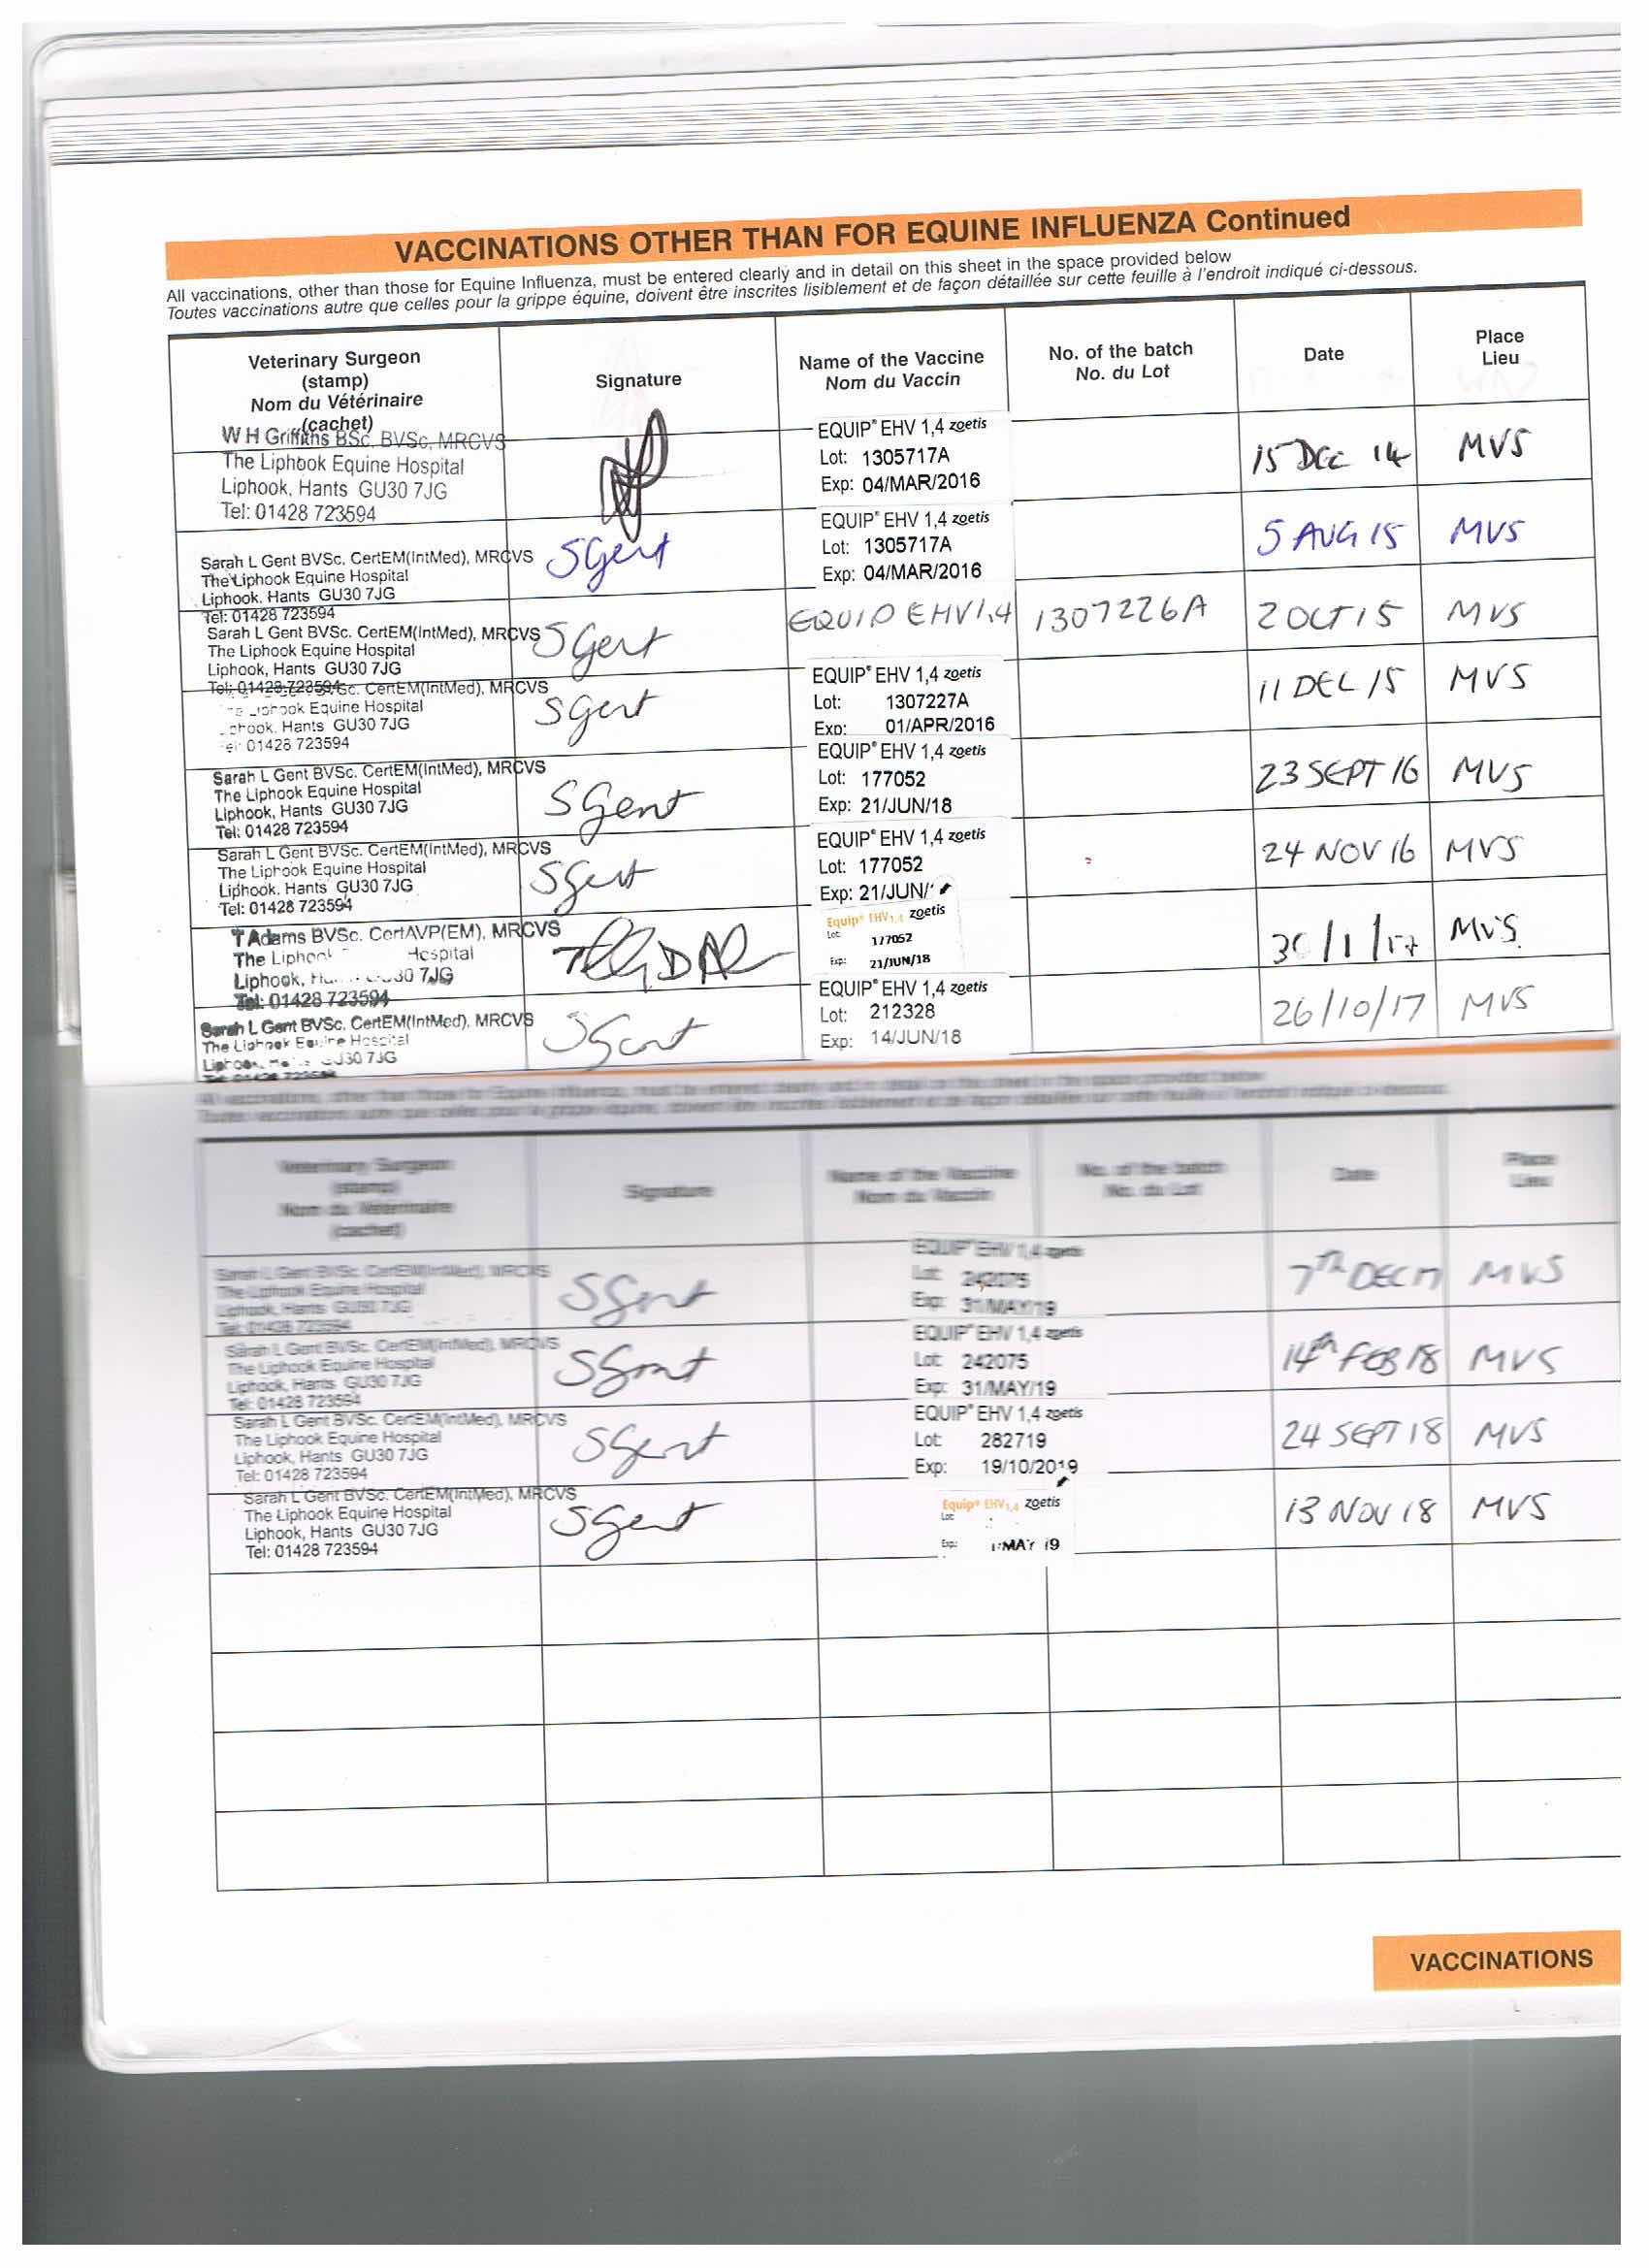 VACCINATIONS OTHER THAN FOR EQUINE INFLUENZA Continued
All vaccinations, other than those for Equine Influenza, must be entered clearly and in detail on this sheet in the space provided below
Toutes vaccinations autre que celles pour la grippe équine, doivent être inscrites lisiblement et de façon détaillée sur cette feuille à l'endroit indiqué ci-dessous.
Veterinary Surgeon
(stamp)
Nom du Vétérinaire
(cachet)
Signature
Name of the Vaccine
Nom du Vaccin
No. of the batch
No. du Lot
Date
Place
Lieu
W H Griffiths BSc. BVSc, MRCVS
The Liphook Equine Hospital
Liphook, Hants GU30 7JG
Tel: 01428 723594
EQUIP® EHV 1,4 zoetis
Lot: 1305717A
Exp: 04/MAR/2016
15 DEC 14
MVS
Sarah L Gent BVSc. CertEM(IntMed), MRCVS
The Liphook Equine Hospital
Liphook. Hants GU30 7JG
Tel: 01428 723594
SGent
EQUIP® EHV 1,4 zoetis
Lot: 1305717A
Exp: 04/MAR/2016
5 AUG 15
MVS
Sarah L Gent BVSc. CertEM(IntMed), MRCVS
The Liphook Equine Hospital
Liphook, Hants GU30 7JG
Tel: 01428 723594
SGent
EQUIP EHV1,4
1307226A
2 OCT 15
MVS
Sc. CertEM(IntMed), MRCVS
Liphook Equine Hospital
Hants GU30 7JG
01428 723594
SGent
EQUIP® EHV 1,4 zoetis
Lot: 1307227A
Exp: 01/APR/2016
11 DEC 15
MVS
Sarah L Gent BVSc. CertEM(IntMed), MRCVS
The Liphook Equine Hospital
Liphook, Hants GU30 7JG
Tel: 01428 723594
SGent
EQUIP® EHV 1,4 zoetis
Lot: 177052
Exp: 21/JUN/18
23 SEPT 16
MVS
Sarah L Gent BVSc. CertEM(IntMed), MRCVS
The Liphook Equine Hospital
Liphook. Hants GU30 7JG
Tel: 01428 723594
SGent
EQUIP® EHV 1,4 zoetis
Lot: 177052
Exp: 21/JUN/
24 NOV 16
MVS
T Adams BVSc. CertAVP(EM), MRCVS
The Hospital
Liphook, 7JG
Tel: 01428 723594
Equip® EHV1,4 zoetis
Lot: 177052
Exp: 21/JUN/18
30/1/17
MVS
Sarah L Gent BVSc. CertEM(IntMed), MRCVS
The Liphook Equine Hospital
GU30 7JG
Tel: 01428 723594
SGent
EQUIP® EHV 1,4 zoetis
Lot: 212328
Exp: 14/JUN/18
26/10/17
MVS
Veterinary Surgeon
(stamp)
Nom du Vétérinaire
(cachet)
Signature
Name of the Vaccine
Nom du Vaccin
No. of the batch
No. du Lot
Date
Place
Lieu
Sarah L Gent BVSc. CertEM(IntMed), MRCVS
The Liphook Equine Hospital
Liphook, Hants GU30 7JG
Tel: 01428 723594
SGent
EQUIP® EHV 1,4 zoetis
Lot: 242075
Exp: 31/MAY/19
7TH DEC 17
MVS
Sarah L Gent BVSc. CertEM(IntMed), MRCVS
The Liphook Equine Hospital
Liphook, Hants GU30 7JG
Tel: 01428 723594
SGent
EQUIP® EHV 1,4 zoetis
Lot: 242075
Exp: 31/MAY/19
14th FEB 18
MVS
Sarah L Gent BVSc. CertEM(IntMed), MRCVS
The Liphook Equine Hospital
Liphook, Hants GU30 7JG
Tel: 01428 723594
SGent
EQUIP® EHV 1,4 zoetis
Lot: 282719
Exp: 19/10/2019
24 SEPT 18
MVS
Sarah L Gent BVSc. CertEM(IntMed), MRCVS
The Liphook Equine Hospital
Liphook, Hants GU30 7JG
Tel: 01428 723594
SGent
Equip® EHV1,4 zoetis
Lot:
Exp: MAY 19
13 NOV 18
MVS
VACCINATIONS